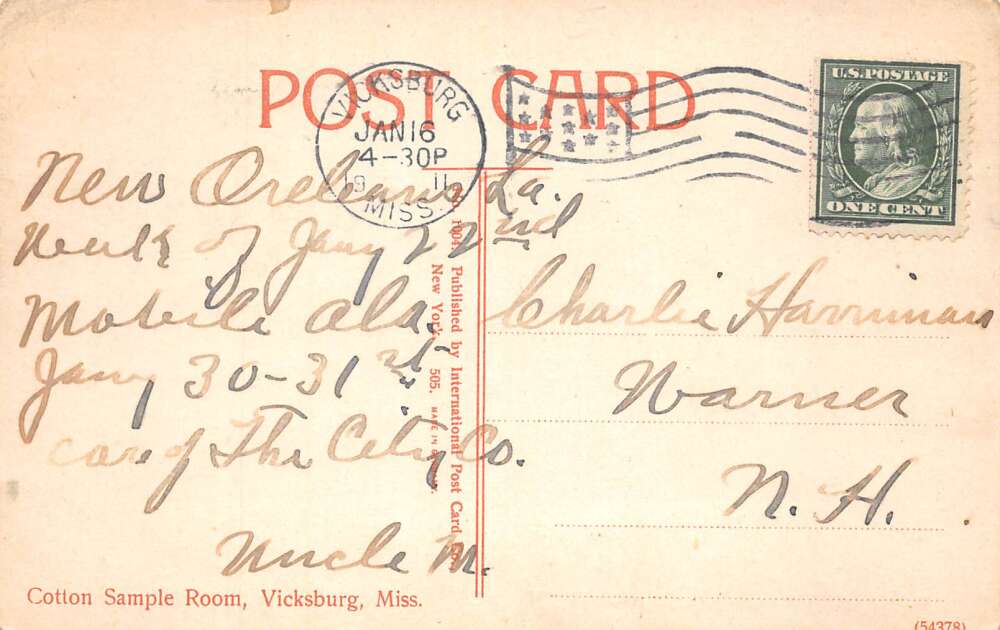 POST CARD
VICKSBURG
JAN 16
4-30P
11
MISS.
U.S. POSTAGE
ONE CENT
New Orleans La.
Week of Jany 22nd
Mobile Ala.
Jany 30-31st
care of The City Co.
Uncle M.
Charlie Harriman
Warner
N. H.
1904. Published by International Post Card Co.
New York. 505. MADE IN
Cotton Sample Room, Vicksburg, Miss.
(54378)